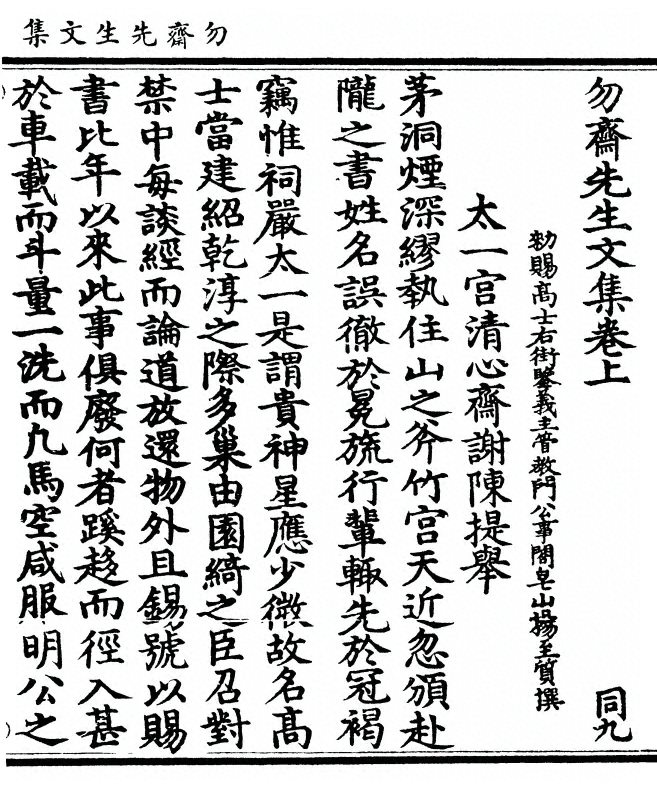 勿齋先生文集
勿齋先生文集卷上
同九
勑賜高士右街鑒義主管教門公事閤皂山楊至質撰
太一宮清心齋謝陳提舉
茅洞煙深繆執住山之斧竹宮天近忽頒赴
隴之書姓名誤徹於冕旒行輩輙先於冠褐
竊惟祠嚴太一是謂貴神星應少微故名高
士當建紹乾淳之際多巢由園綺之臣召對
禁中每談經而論道放還物外且錫號以賜
書比年以來此事俱廢何者蹊趍而徑入甚
於車載而斗量一洗而九馬空咸服明公之